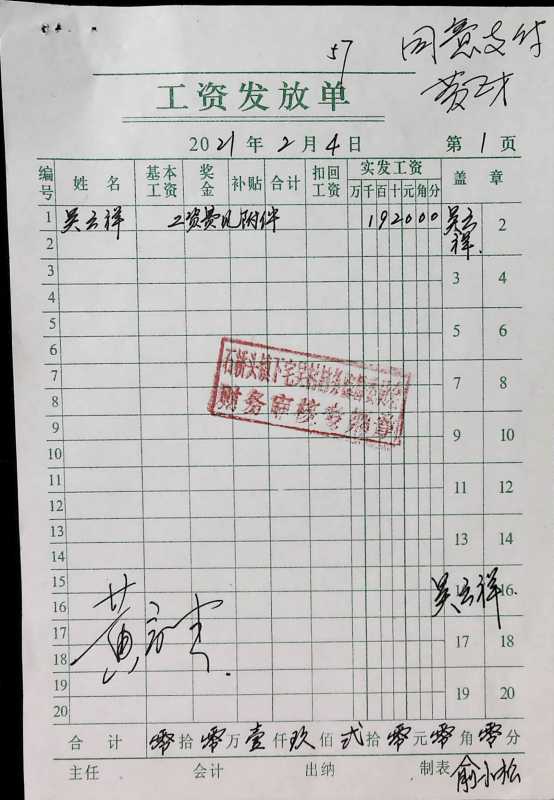 57
同意支付
工资发放单
2021年2月4日 第1页
编号 姓名 基本工资 奖金 补贴 合计 扣回工资 实发工资 万千百十元角分 盖章
1 吴云祥 工资费见附件 192000 吴云祥 2
2
3 3 4
4
5 5 6
6
7 7 8
8
9 9 10
10
11 11 12
12
13 13 14
14
15 吴云祥 16
16
17 17 18
18
19 19 20
20
财务审核专用章
合计 零拾零万壹仟玖佰贰拾零元零角零分
主任 会计 出纳 制表 俞小松